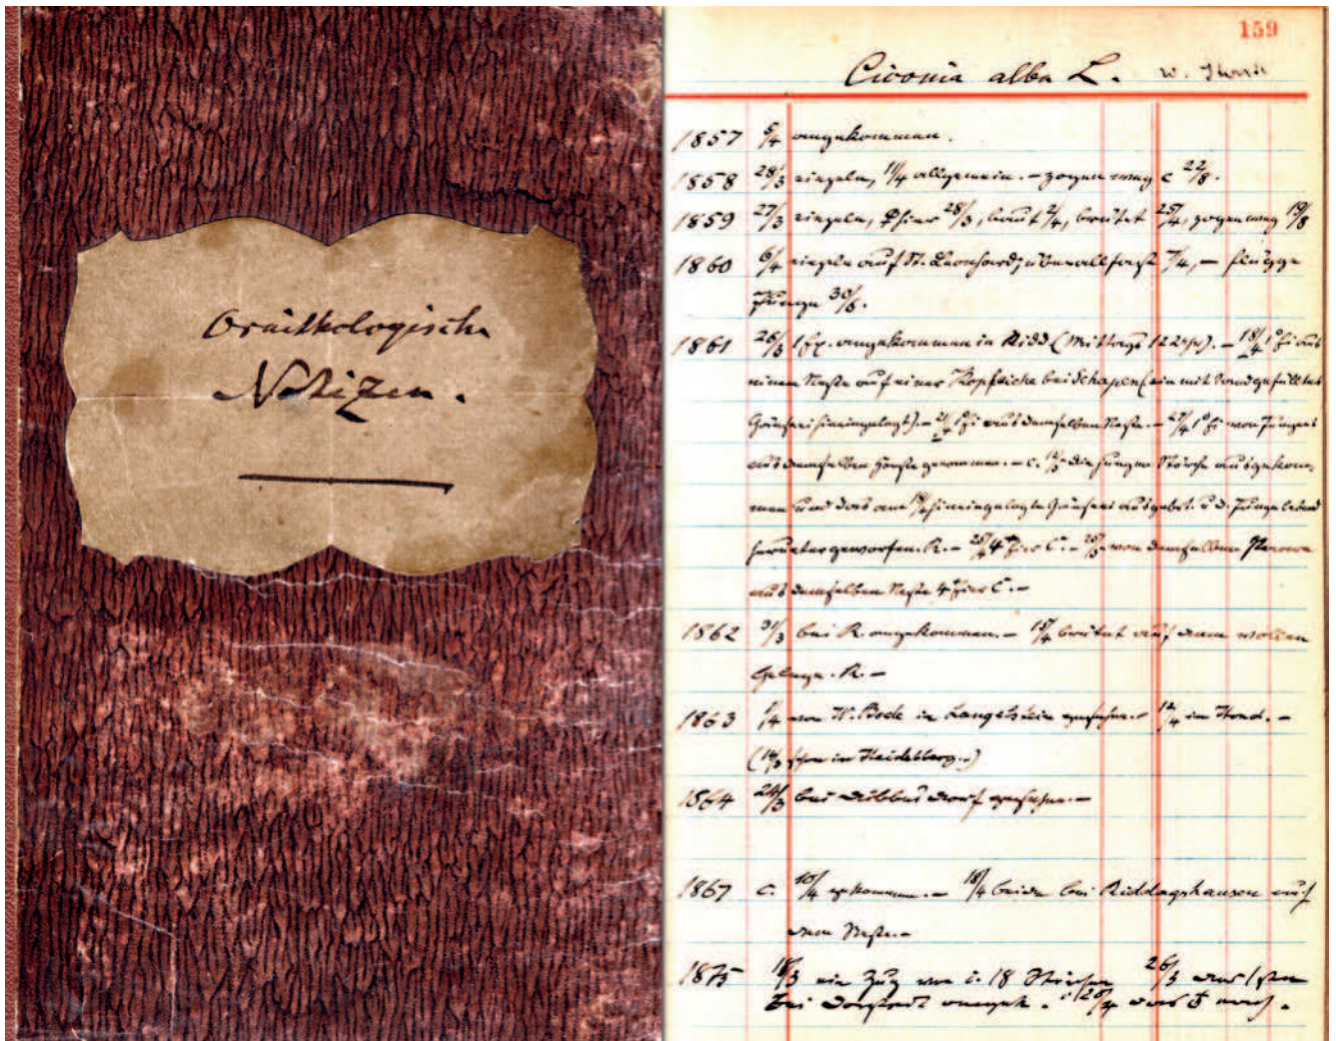 Ornithologische
Notizen.
159
Ciconia alba L. w. Storch
1857 5/4 angekommen.
1858 28/3 einzeln, 11/4 allgemein. – zogen weg c 22/8.
1859 27/3 einzeln, hier 28/3, baut 2/4, brütet 25/4, zogen weg 19/8
1860 6/4 einzeln auf St. Leonhard; überall fast 7/4, – flügge
Junge 30/6.
1861 26/3 1 Ex. angekommen in Ridd (Mittags 12 Uhr). – 18/4 1 Ei aus
einem Neste auf einer Kopfeiche bei Schapen (ein mit Sand gefülltes
Gänseei hineingelegt). – 1 Ei aus demselben Neste. – 27/4 1 Ei von
aus demselben Horste genommen. – c. die jungen Störche ausgekom-
men und das am hineingelegte Gänseei
heruntergeworfen. R. – 4 Eier C. – von demselben
aus demselben Neste 4 Eier C. –
1862 31/3 bei R. angekommen. – 18/4 brütet auf dem vollen
Gelege. R. –
1863 1/4 von W. Bode in Langelsheim gesehen. – 12/4 im –
(14/3 schon in Heidelberg. –)
1864 24/3 bei Dibbesdorf gesehen. –
1867 c. 10/4 gekommen. – 18/4 beide bei Riddagshausen auf
dem Neste. –
1875 18/3 ein Zug von c. 18 Störchen 26/3 das 1ste
bei Dorstadt 26/4 das